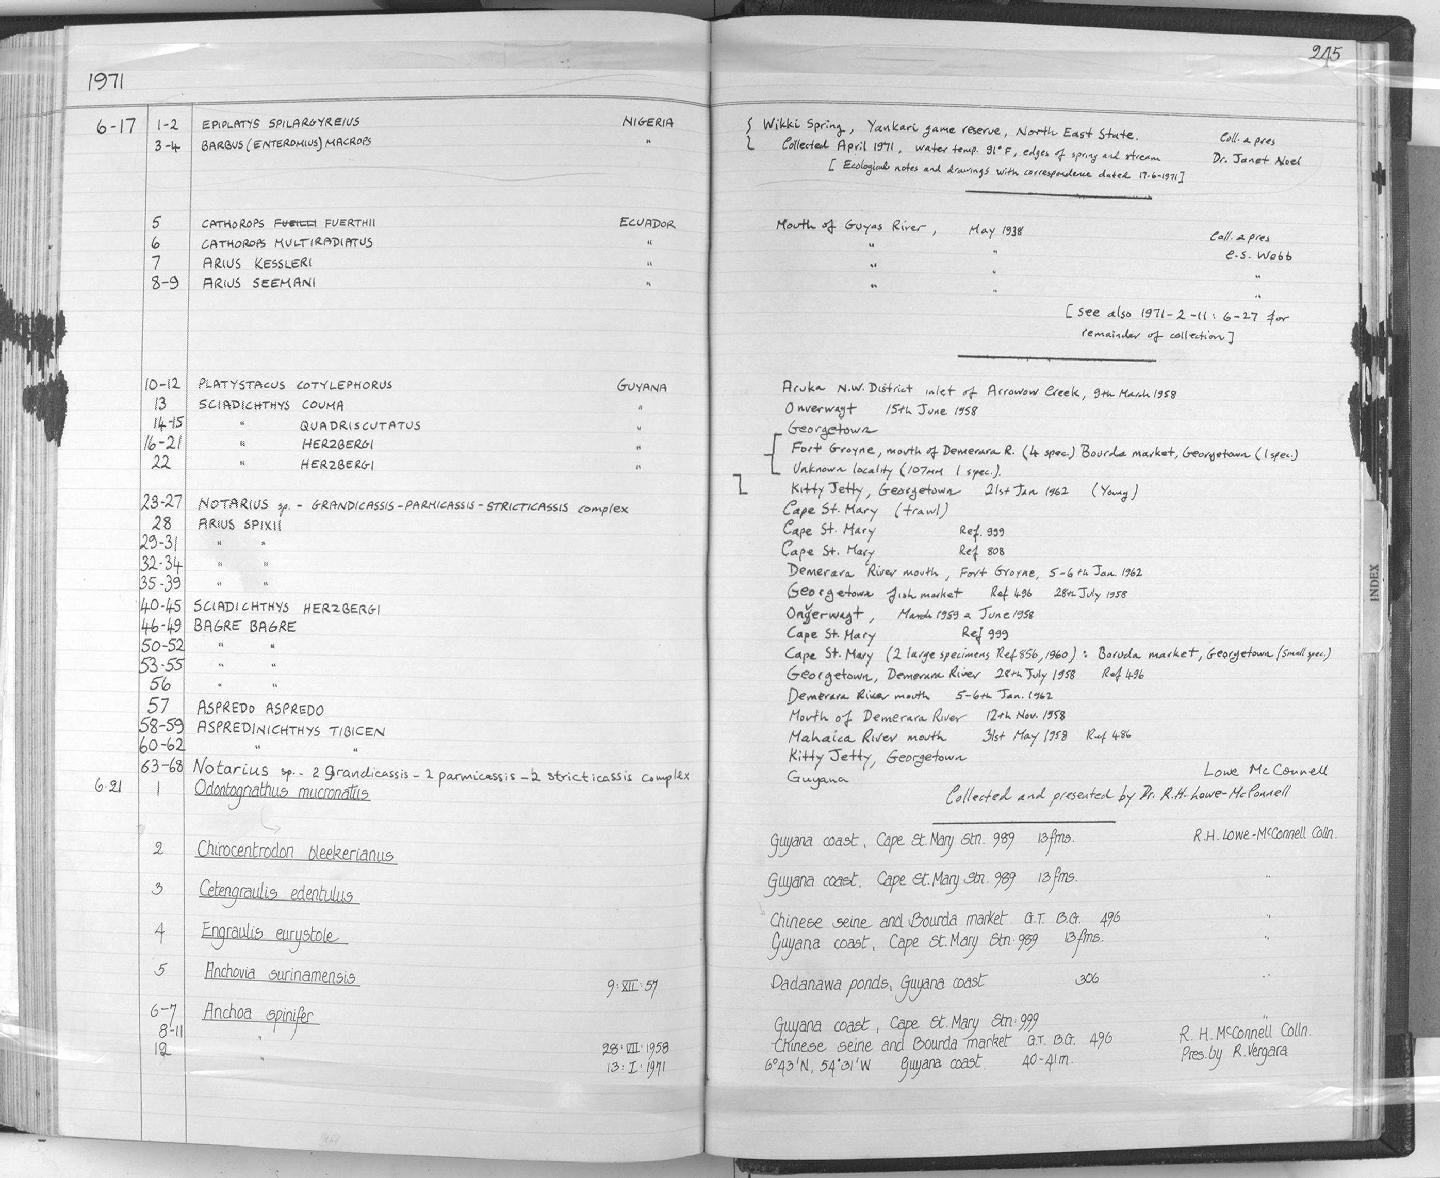 1971
245
6-17 1-2 EPIPLATYS SPILARGYREIUS NIGERIA { Wikki Spring, Yankari game reserve, North East State. Coll. & pres
3-4 BARBUS (ENTEROMIUS) MACROPS " Collected April 1971, water temp. 91°F, edges of spring and stream Dr. Janet Noel
[ Ecological notes and drawings with correspondence dated 17-6-1971 ]
5 CATHOROPS FUERTHII ECUADOR Mouth of Guyas River, May 1938
6 CATHOROPS MULTIRADIATUS " " " Coll. & pres
7 ARIUS KESSLERI " " " C.S. Webb
8-9 ARIUS SEEMANI " " " "
"
[ See also 1971-2-11: 6-27 for
remainder of collection ]
10-12 PLATYSTACUS COTYLEPHORUS GUYANA Aruka N.W. District inlet of Arrowow Creek, 9th March 1958
13 SCIADICHTHYS COUMA " Onverwagt 15th June 1958
14-15 " QUADRISCUTATUS " Georgetown
16-21 " HERZBERGI " Fort Groyne, mouth of Demerara R. (4 spec.) Bourda market, Georgetown (1 spec.)
22 " HERZBERGI " Unknown locality (107mm 1 spec.).
Kitty Jetty, Georgetown 21st Jan 1962 (Young)
23-27 NOTARIUS sp. - GRANDICASSIS-PARMICASSIS-STRICTICASSIS complex Cape St. Mary (trawl)
28 ARIUS SPIXII Cape St. Mary Ref. 999
29-31 " " Cape St. Mary Ref 808
32-34 " " Demerara River mouth, Fort Groyne, 5-6th Jan. 1962
35-39 " " Georgetown fish market Ref 496 28th July 1958
40-45 SCIADICHTHYS HERZBERGI Onverwagt, March 1959 & June 1958
46-49 BAGRE BAGRE Cape St. Mary Ref 999
50-52 " " Cape St. Mary (2 large specimens Ref 856, 1960): Boruda market, Georgetown (Small spec.)
53-55 " " Georgetown, Demerara River 28th July 1958 Ref 496
56 " " Demerara River mouth 5-6th Jan. 1962
57 ASPREDO ASPREDO Mouth of Demerara River 12th Nov. 1958
58-59 ASPREDINICHTHYS TIBICEN Mahaica River mouth 31st May 1958 Ref 486
60-62 " " Kitty Jetty, Georgetown
63-68 Notarius sp. - 2 grandicassis - 2 parmicassis - 2 stricticassis complex Guyana Lowe McConnell
6.21 1 Odontognathus mucronatus Collected and presented by Dr. R.H. Lowe-McConnell
Guyana coast, Cape St. Mary Stn. 989 13 fms. R.H. LOWE-McConnell Colln.
2 Chirocentrodon bleekerianus
Guyana coast, Cape St. Mary Stn. 989 13 fms. "
3 Cetengraulis edentulus
Chinese seine and Bourda market G.T. B.G. 496 "
4 Engraulis eurystole Guyana coast, Cape St. Mary Stn. 989 13 fms. "
5 Anchovia surinamensis 9·XII·57 Dadanawa ponds, Guyana coast 306 "
6-7 Anchoa spinifer Guyana coast, Cape St. Mary Stn. 999 "
8-11 " 28·VII·1958 Chinese seine and Bourda market G.T. B.G. 496 R. H. McConnell Colln.
12 " 13·I·1971 6°43'N, 54°31'W Guyana coast 40-41m. Pres. by R. Vergara
INDEX